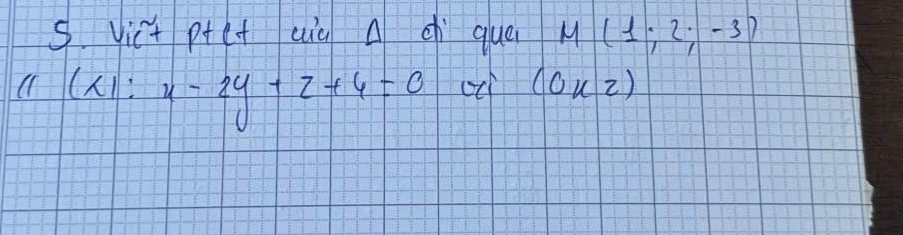 5. Viết ptct của Δ đi qua M (1; 2; -3)
// (α): x - 2y + z + 4 = 0 và (Oxz)